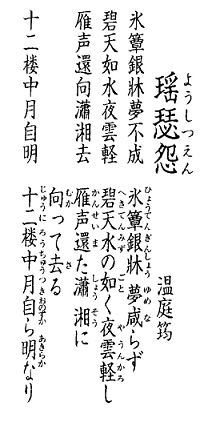 ようしつえん
瑶瑟怨
温庭筠
氷簟銀牀夢不成
碧天如水夜雲軽
雁声還向瀟湘去
十二楼中月自明
ひょうでんぎんしょう ゆめ な
氷簟銀牀 夢咸らず
へきてんみず ごと やうんかろ
碧天水の如く夜雲軽し
かんせいま しょうそう
雁声還た瀟湘に
むか さ
向って去る
じゅうに ろうちゅうつきおのずか あきらか
十二楼中月自ら明なり